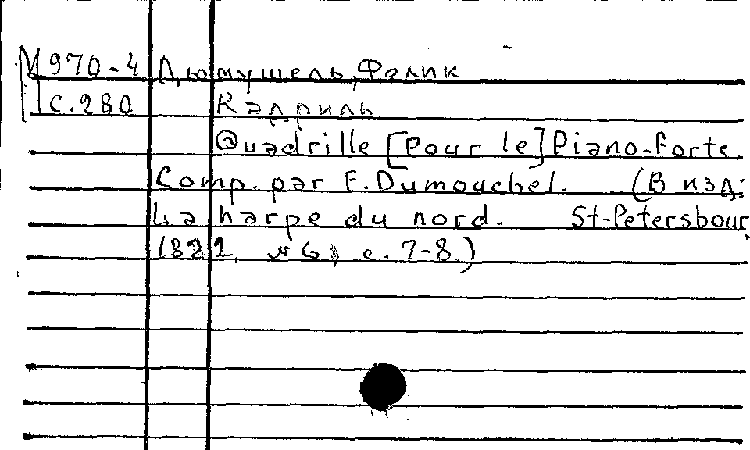 М 970-4 Дюмушель, Феликс
с.280 Кадриль
Quadrille [pour le] Piano-forte
Comp. par F. Dumouchel. (В изд:
La harpe du nord. St-Petersbour
1822, № 6, с. 7-8.)